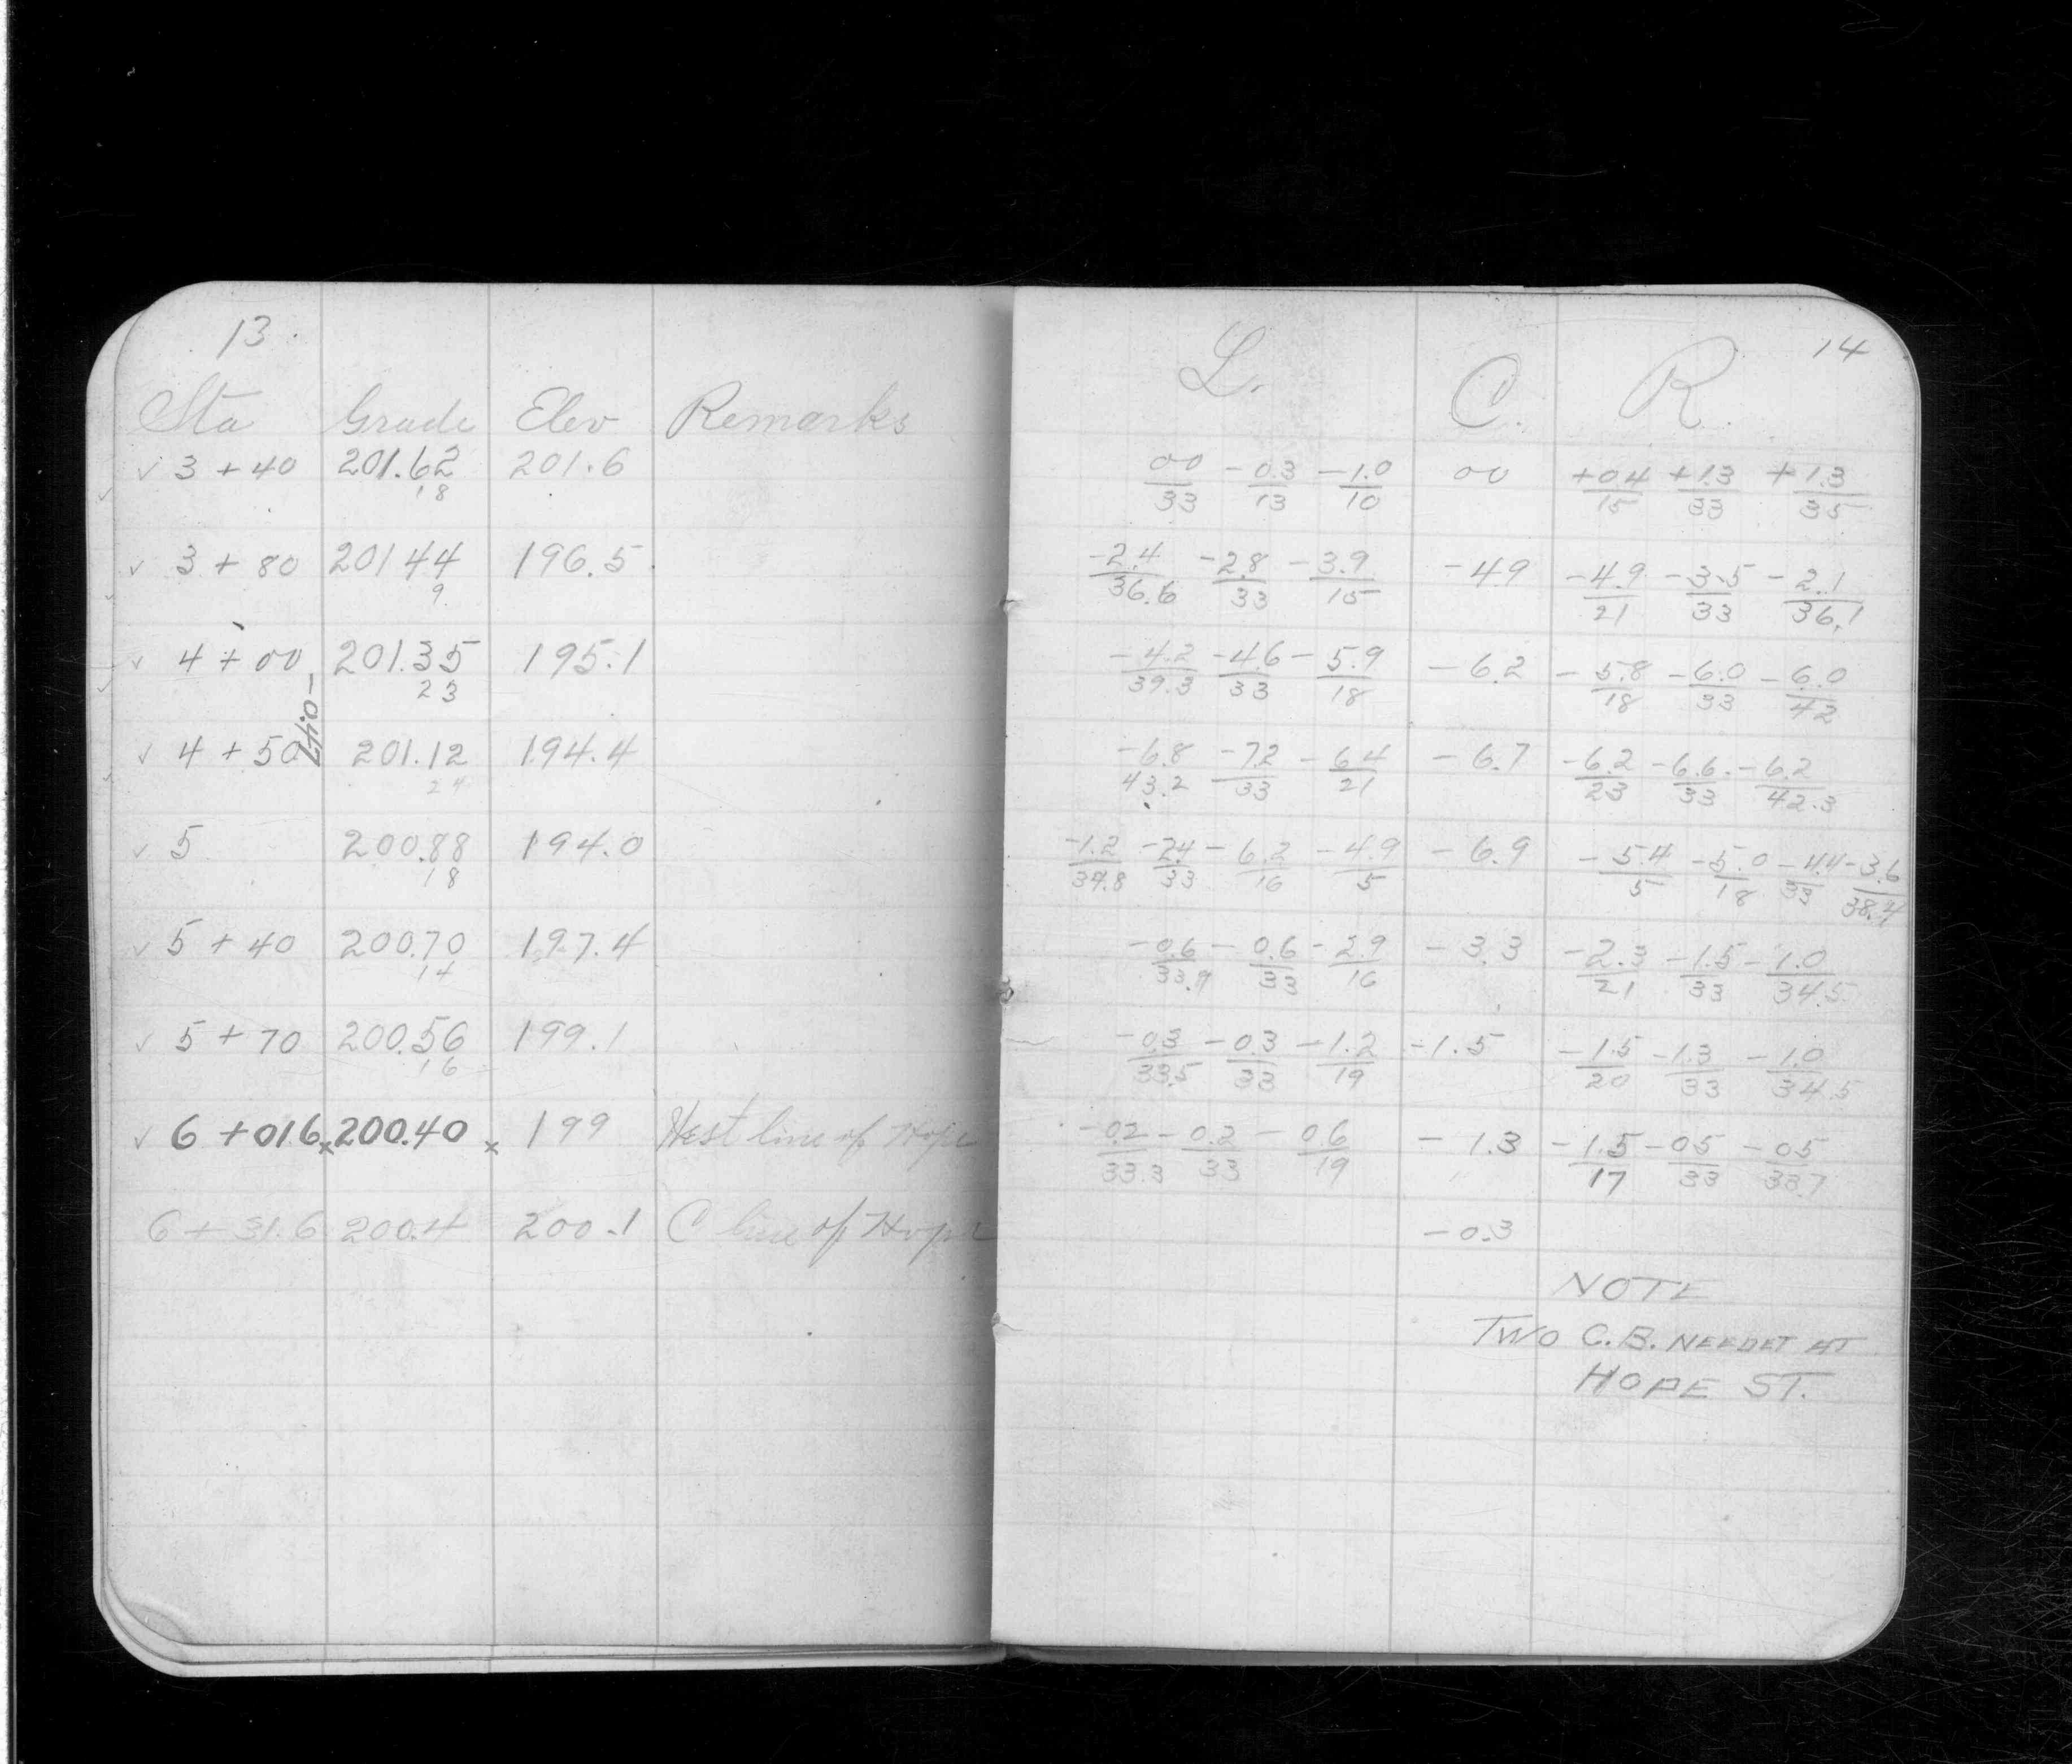 13.
Sta Grade Elev Remarks
✓ 3 + 40 201.62 201.6
18
✓ 3 + 80 201 44 196.5
9
✓ 4 + 00 201.35 195.1
23
✓ 4 + 50 201.12 194.4
24
✓ 5 200.88 194.0
18
✓ 5 + 40 200.70 197.4
14
✓ 5 + 70 200.56 199.1
16
✓ 6 + 01.6 x 200.40 x 199 West line of Hope
6 + 31.6 200.4 200.1 C line of Hope
14
L. C. R.
00 -0.3 -1.0 00 +0.4 +1.3 +1.3
33 13 10 15 33 35
-2.4 -2.8 -3.9 -4.9 -4.9 -3.5 -2.1
36.6 33 15 21 33 36.1
-4.2 -4.6 -5.9 -6.2 -5.8 -6.0 -6.0
39.3 33 18 18 33 42
-6.8 -7.2 -6.4 -6.7 -6.2 -6.6 -6.2
43.2 33 21 23 33 42.3
-1.2 -7.4 -6.2 -4.9 -6.9 -5.4 -5.0 -4.4 -3.6
34.8 33 16 5 5 18 33 38.4
-0.6 -0.6 -2.9 -3.3 -2.3 -1.5 -1.0
33.9 33 16 21 33 34.5
-0.3 -0.3 -1.2 -1.5 -1.5 -1.3 -1.0
33.5 33 19 20 33 34.5
-0.2 -0.2 -0.6 -1.3 -1.5 -0.5 -0.5
33.3 33 19 17 33 33.7
-0.3
NOTE
TWO C.B. NEEDET AT
HOPE ST.